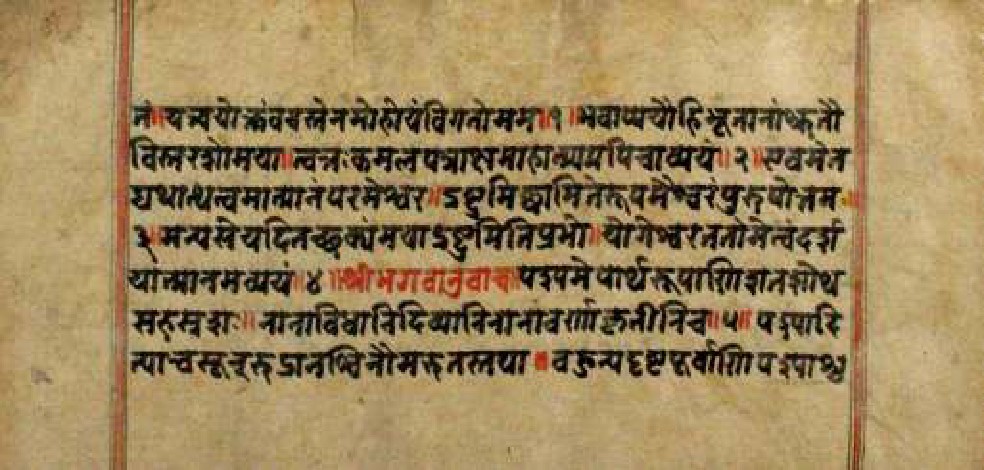 तं॥यत्त्वयोक्तंवचस्तेनमोहोयंविगतोमम॥१॥भवाप्ययौहिभूतानांश्रुतौ
विस्तरशोमया॥त्वत्तःकमलपत्राक्षमाहात्म्यमपिचाव्ययं॥२॥एवमेत
द्यथात्थत्वमात्मानंपरमेश्वर॥द्रष्टुमिछामितेरूपमैश्वरंपुरुषोत्तम॥
३॥मन्यसेयदितच्छक्यंमयाद्रष्टुमितिप्रभो॥योगेश्वरततोमेत्वंदर्श
यात्मानमव्ययं॥४॥श्रीभगवानुवाच॥पश्यमेपार्थरूपाणिशतशोथ
सहस्रशः॥नानाविधानिदिव्यानिनानावर्णाकृतीनिच॥५॥पश्यादि
त्यान्वसून्रुद्रानश्विनौमरुतस्तथा॥बहून्यदृष्टपूर्वाणिपश्याश्च